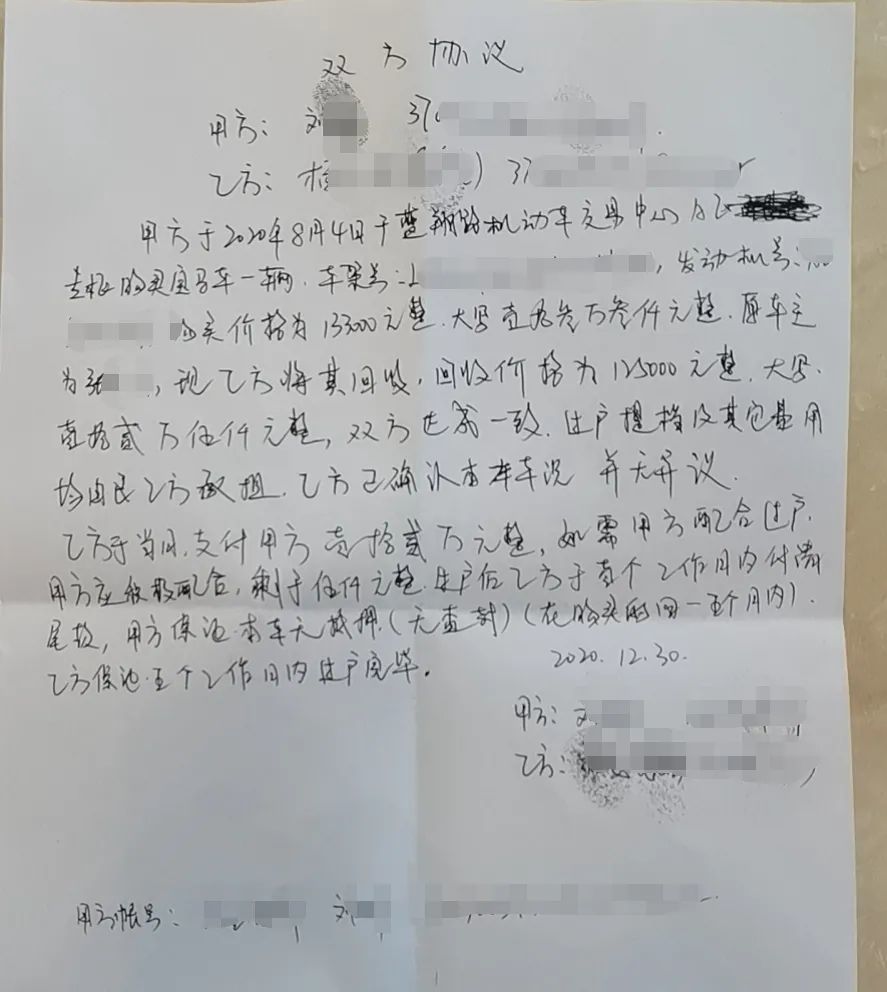 双方协议
甲方：刘 37
乙方： 37
甲方于2020年8月4日于蓝翔路机动车交易中心
购买宝马车一辆．车架号：L ，发动机号：
购买价格为133000元整．大写壹拾叁万叁仟元整．原车主
为张 ，现乙方将其回收，回收价格为125000元整．大写．
壹拾贰万伍仟元整，双方达成一致．过户提档及其它费用
均由 乙方承担．乙方已确认本车车况 并无异议．
乙方于当日．支付甲方壹拾贰万元整，如需甲方配合过户．
甲方应积极配合，剩于伍仟元整．过户后乙方于 个工作日内付清
尾款，甲方保证本车无抵押．（无查封）（在购买 五个月内）．
乙方保证．五个工作日内过户完毕．
2020.12.30.
甲方：刘
乙方：
甲方帐号： 刘